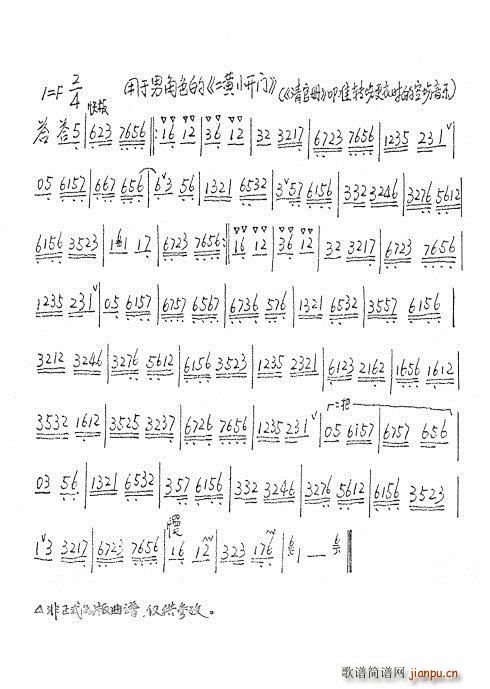 1=F 2/4 用于男角色的《二黄小开门》
快板
答答5 | 6723 7656 |: 16 12 | 36 12 | 32 3217 | 6723 7656 | 1235 231 |
05 6157 | 667 656 | 6 3 56 | 1321 6532 | 357 6156 | 332 3246 | 3276 5612 |
6156 3523 | 161 17 | 6723 7656 :| 16 12 | 36 12 | 32 3217 | 6723 7656 |
1235 231 | 05 6157 | 6757 6567 | 6736 576 | 1321 6532 | 3557 6156 |
3212 3246 | 3276 5612 | 6156 3523 | 1235 2321 | 6123 2162 | 1656 1612 |
3532 1612 | 3525 3237 | 6726 7656 | 1235 231 | 05 6157 | 6757 656 |
03 56 | 1321 6532 | 357 6156 | 332 3246 | 3276 5612 | 6156 3523 |
慢
1 3 3217 | 6723 7656 | 16 12 | 323 176 | 1 —
△非正式出版曲谱，仅供参改。
歌谱简谱网
jianpu.cn